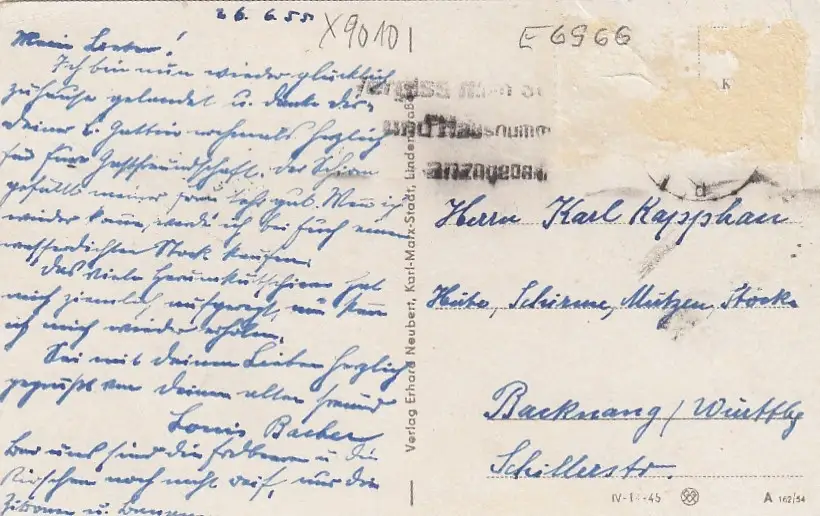 26.6.55
X90101
E6966
Mein Lieber!
Ich bin nun wieder glücklich
zuhause gelandet u. danke dir,
deiner l. Gattin nochmals herzlich
für Eure Gastfreundschaft. Der Schirm
gefällt meiner Frau sehr gut. Wenn ich
wieder komme, werde ich bei Euch einen
wasserdichten Stock kaufen.
Das viele Herumkutschieren hat
mich ziemlich aufgeregt, nun kann
ich mich wieder erholen.
Sei mit deinen Lieben herzlich
gegrüßt von deinem alten Freund
Louis
Bei uns sind die Erdbeeren u. die
Kirschen noch nicht reif, nur die
Zitronen u.
Verlag Erhard Neubert, Karl-Marx-Stadt, Lindenstraße
und Hausnumm
anzugeben
K
d
Herrn Karl Kapphan
Hüte, Schirme, Mützen, Stöcke
Backnang / Württbg
Schillerstr.
A 162/54